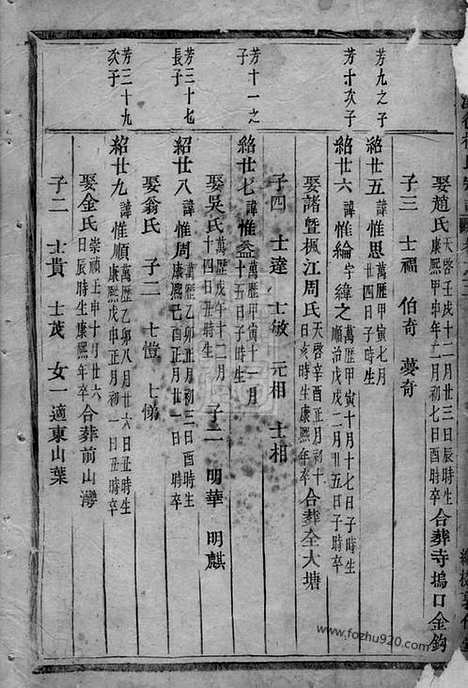 娶趙氏 天啓壬戌十二月廿三日辰時生 康熙甲申年十二月初七日酉時卒 合葬寺塢口金鈎
子三 士福 伯奇 夢奇
芳九之子
紹廿五 諱惟思 萬歷甲寅七月 廿四日子時生
芳十次子
紹廿六 諱惟綸 字緯之 萬歷甲寅十月十七日子時生 順治戊戌二月廿五日子時卒
娶諸暨楓江周氏 天啓辛酉正月初十 日亥時生康熙年卒 合葬全大塘
子四 士達 士敏 元相 士相
芳十一之子
紹廿七 諱惟益 萬歷甲寅十一月 十五日子時生
娶吳氏 萬歷戊午十二月 十四日丑時生 子二 明華 明麒
芳三十七長子
紹廿八 諱惟周 萬歷乙卯正月初三日酉時生 康熙己酉正月初三日丑時卒
娶翁氏 子二 士愷 士悌
芳三十九次子
紹廿九 諱惟順 萬歷乙卯八月廿六日丑時生 康熙戊申正月初一日丑時卒
娶金氏 崇禎壬申十月廿六 日辰時生康熙年卒 合葬前山灣
子二 士貴 士茂 女一適東山葉
www.fozhu920.com